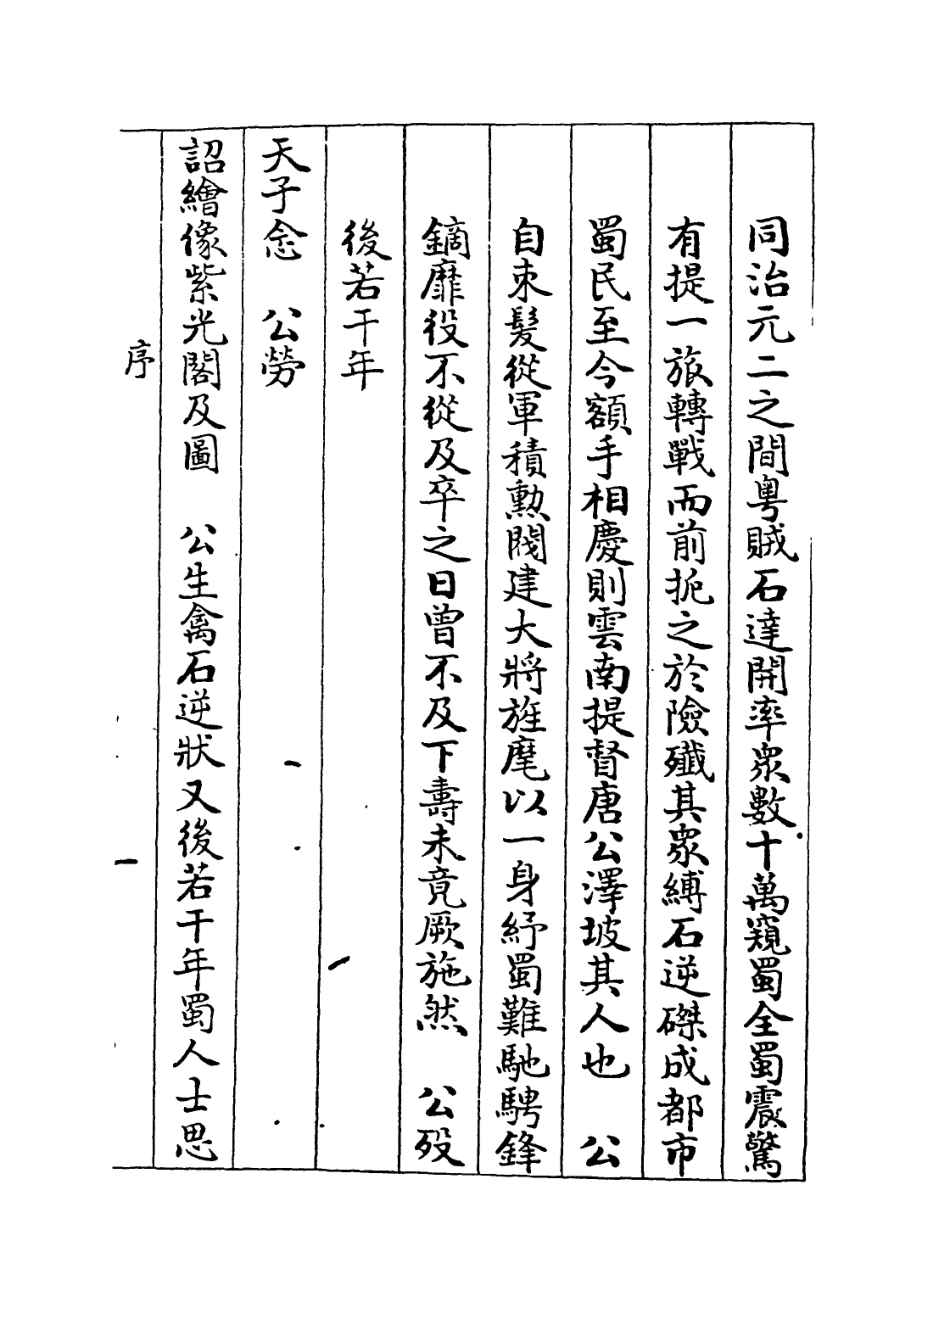 同治元二之間粵賊石達開率衆數十萬窺蜀全蜀震驚
有提一旅轉戰而前扼之於險殲其衆縛石逆磔成都市
蜀民至今額手相慶則雲南提督唐公澤坡其人也　公
自束髮從軍積勳閥建大將旌麾以一身紓蜀難馳騁鋒
鏑靡役不從及卒之日曾不及下壽未竟厥施然　公歿
後若干年
天子念　公勞
詔繪像紫光閣及圖　公生禽石逆狀又後若干年蜀人士思
序
一